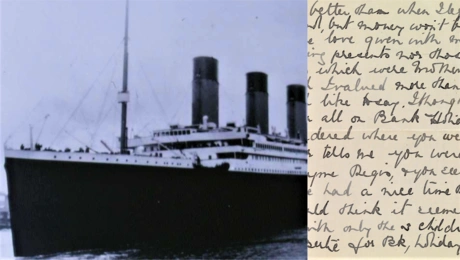 better than when I le
but money won't b
love given with m
presents nor thos
which were Mother
I valued more than
like to say. I though
all on Bank Holid
dered where you we
tells me you were
yme Regis, & you see
had a nice time
ld think it seeme
ith only the 2 childr
for Bk. Holiday